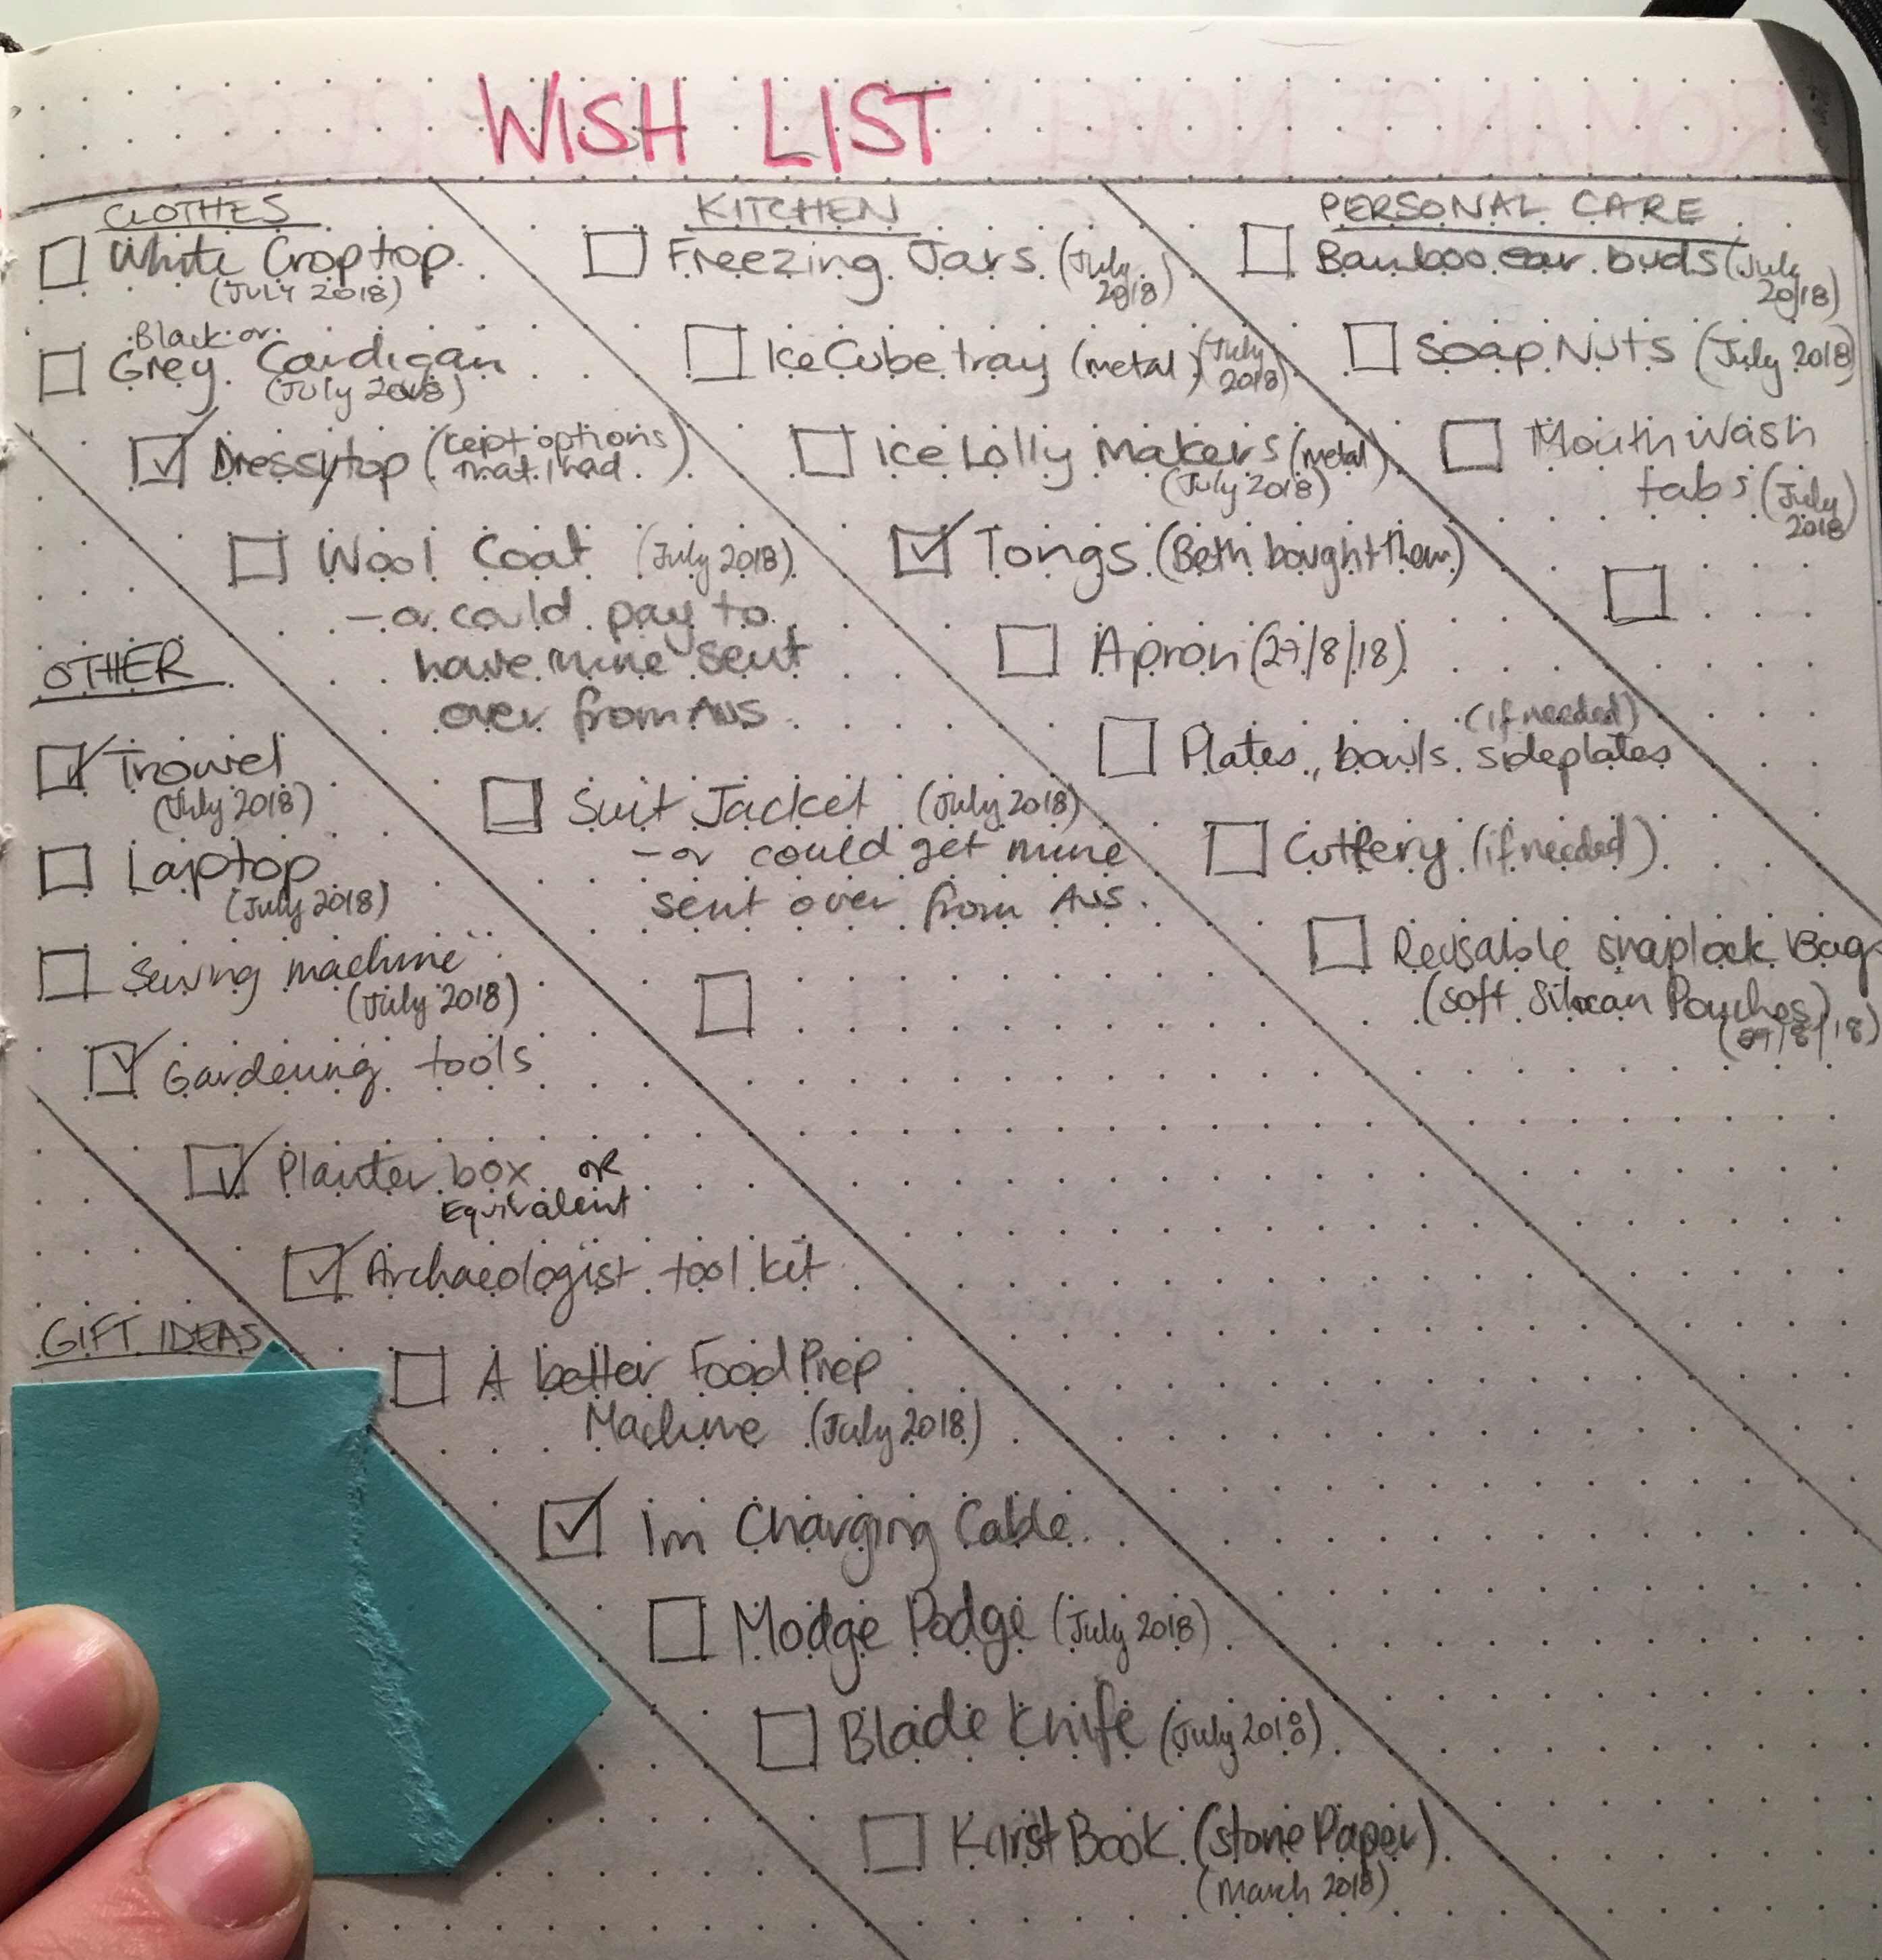 WISH LIST
CLOTHES
White Crop top
(JULY 2018)
Black or
Grey Cardigan
(July 2018)
Dressy top (kept options
that I had)
Wool Coat (July 2018)
- or could pay to
have mine sent
over from AUS
Suit Jacket (July 2018)
- or could get mine
sent over from AUS.
KITCHEN
Freezing Jars (July
2018)
Ice Cube tray (metal) (July
2018)
Ice Lolly Makers (metal)
(July 2018)
Tongs (Beth bought them)
Apron (27/8/18)
(if needed)
Plates, bowls, sideplates
Cutlery (if needed)
Reusable snaplock Bags
(soft Silican Pouches)
(27/8/18)
PERSONAL CARE
Bamboo ear buds (July
2018)
Soap Nuts (July 2018)
Mouth Wash
tabs (July
2018)
OTHER
Trowel
(July 2018)
Laptop
(July 2018)
Sewing machine
(July 2018)
Gardening tools
Planter box or
Equivalent
Archaeologist tool kit
A better Food Prep
Machine (July 2018)
1m Charging Cable
Modge Podge (July 2018)
Blade Knife (July 2018)
Karst Book (stone Paper)
(March 2018)
GIFT IDEAS